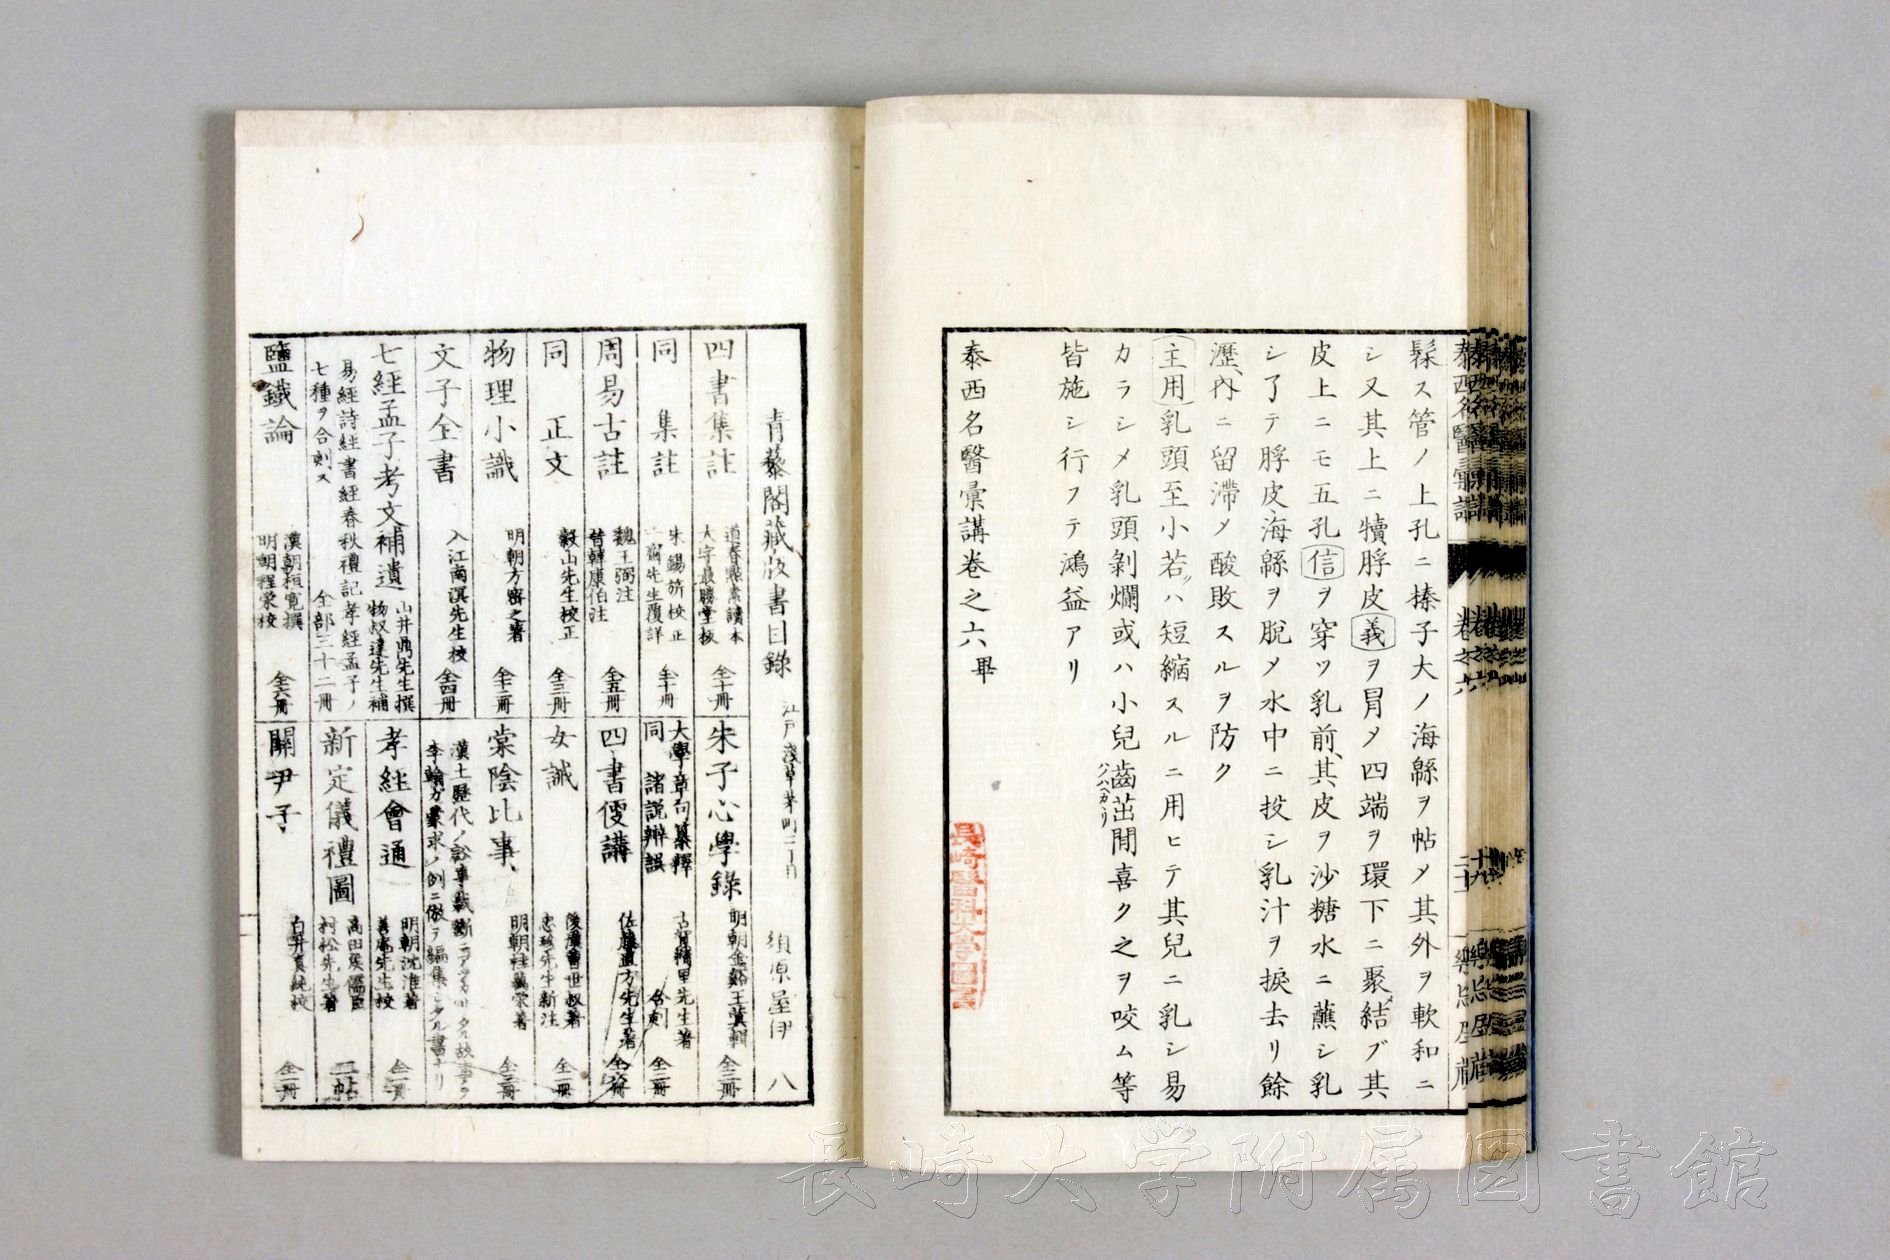 髹ス管ノ上孔ニ榛子大ノ海緜ヲ帖メ其外ヲ軟和ニ
シ又其上ニ犢脬皮義ヲ冒メ四端ヲ環下ニ聚結ブ其
皮上ニモ五孔信ヲ穿ツ乳前其皮ヲ沙糖水ニ蘸シ乳
シ了テ脬皮海緜ヲ脱メ水中ニ投シ乳汁ヲ捩去リ餘
瀝内ニ留滯メ酸敗スルヲ防ク
主用乳頭至小若クハ短縮スルニ用ヒテ其兒ニ乳シ易
カラシメ乳頭剝爛或ハ小兒齒茁閒喜ク之ヲ咬ム等
皆施シ行フテ鴻益アリ
泰西名醫彙講卷之六 畢
長崎醫科大學圖書
青藜閣蔵版書目錄 江戸淺草茅町二丁目 須原屋伊 八
四書集註 道春點素讀本 大字最勝堂板 全十冊
同 集註 朱錫旂校正 一齋先生覆詳 全十冊
周易古註 魏王弼注 晉韓康伯注 全五冊
同 正文 穀山先生校正 全三冊
物理小識 明朝方密之著 全十二冊
文子全書 入江南溟先生校 全四冊
七經孟子考文補遺 山井鼎先生撰 物叔達先生補
易經詩經書經春秋禮記孝經孟子ノ
七種ヲ合刻ス 全部三十二冊
鹽鐵論 漢朝桓寬撰 明朝程榮校 全六冊
朱子心學錄 明朝金谿王蓂輯 全三冊
大學章句纂釋
同 諸説辨誤 古賀精里先生著 合刻 全二冊
四書便講 佐藤直方先生著 全六冊
女誡 後漢曹世叔著 先生新注 全一冊
棠陰比事 明朝桂萬榮著 全三冊
孝經會通 明朝沈淮著 善庵先生校 全一冊
新定儀禮圖 村松先生著 二帖
關尹子 全二冊
長崎大学附属図書館